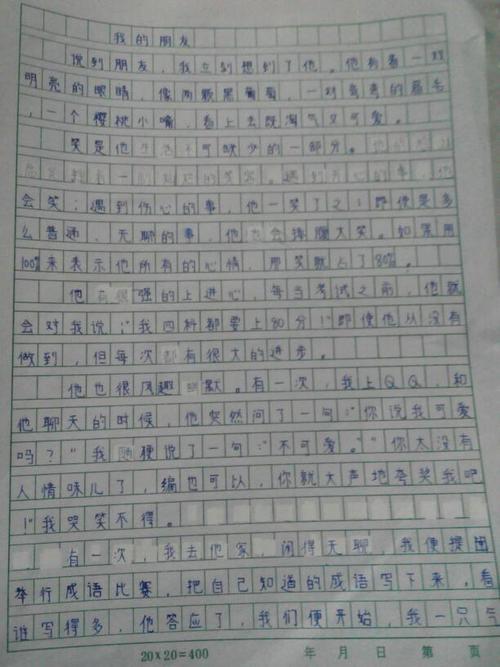 我的朋友
说到朋友，我立刻想到了他。他有着一对
明亮的眼睛，像两颗黑葡萄，一对弯弯的眉毛
，一个樱桃小嘴，看上去既淘气又可爱。
笑是他生活不可缺少的一部分。
的笑容。遇到开心的事，他
会笑；遇到伤心的事，他一笑了之！即使是多
么普通、无聊的事，他也会捧腹大笑。如果用
100%来表示他所有的心情，那笑就占了80%。
他有很强的上进心，每当考试之前，他就
会对我说："我四科都要上80分！"即使他从没有
做到，但每次都有很大的进步。
他也很风趣幽默。有一次，我上QQ，和
他聊天的时候，他突然问了一句："你说我可爱
吗？"我随便说了一句："不可爱。""你太没有
人情味儿了，编也可以，你就大声地夸奖我吧
！"我哭笑不得。
有一次，我去他家，闲得无聊，我便提议
举行成语比赛，把自己知道的成语写下来，看
谁写得多，他答应了，我们便开始，我一只气
20×20=400 年 月 日 第 页